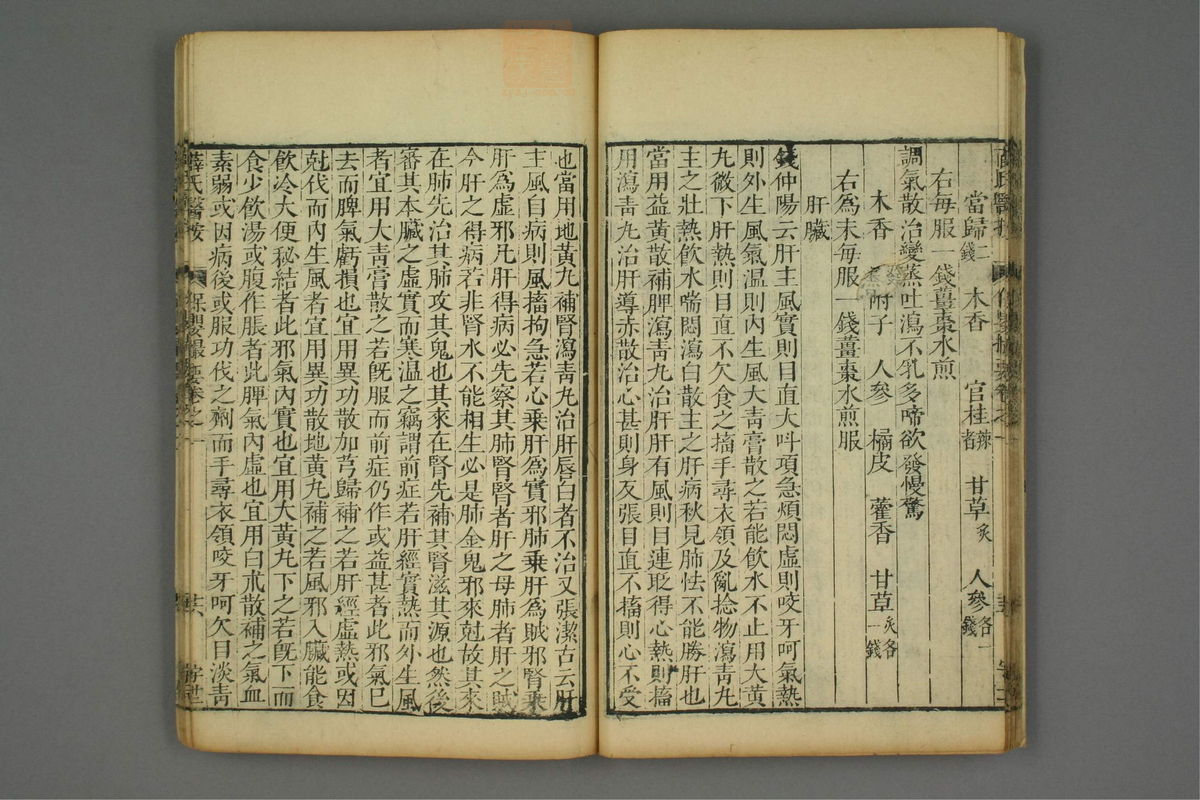 當歸二錢 木香 官桂辣者 甘草炙 人參各一錢
右每服一錢薑棗水煎
調氣散治變蒸吐瀉不乳多啼欲發慢驚
木香 附子 人參 橘皮 藿香 甘草炙各一錢
右為末每服一錢薑棗水煎服
肝臟
錢仲陽云肝主風實則目直大呌項急煩悶虛則咬牙呵氣熱
則外生風氣溫則內生風大青膏散之若能飲水不止用大黃
九微下肝熱則目直不欠食之搐手尋衣領及亂捻物瀉青九
主之壯熱飲水喘悶瀉白散主之肝病秋見肺怯不能勝肝也
當用益黃散補脾瀉青九治肝肝有風則目連聀得心熱則搐
用瀉青九治肝導赤散治心甚則身反張目直不搐則心不受
也當用地黃九補腎瀉青九治肝唇白者不治又張潔古云肝
主風自病則風搐拘急若心乘肝為實邪肺乘肝為賊邪腎乘
肝為虛邪凡肝得病必先察其肺腎腎者肝之母肺者肝之賊
今肝之得病若非腎水不能相生必是肺金鬼邪來尅故其來
在肺先治其肺攻其鬼也其來在腎先補其腎滋其源也然後
審其本臟之虛實而寒溫之竊謂前症若肝經實熱而外生風
者宜用大青膏散之若既服而前症仍作或益甚者此邪氣已
去而脾氣虧損也宜用異功散加芎歸補之若肝經虛熱或因
尅伐而內生風者宜用異功散地黃九補之若風邪入臟能食
飲冷大便秘結者此邪氣內實也宜用大黃九下之若既下而
食少飲湯或腹作脹者此脾氣內虛也宜用白朮散補之氣血
素弱或因病後或服功伐之劑而手尋衣領咬牙呵欠目淡青
薛氏醫按 保嬰撮要卷之一 廿六